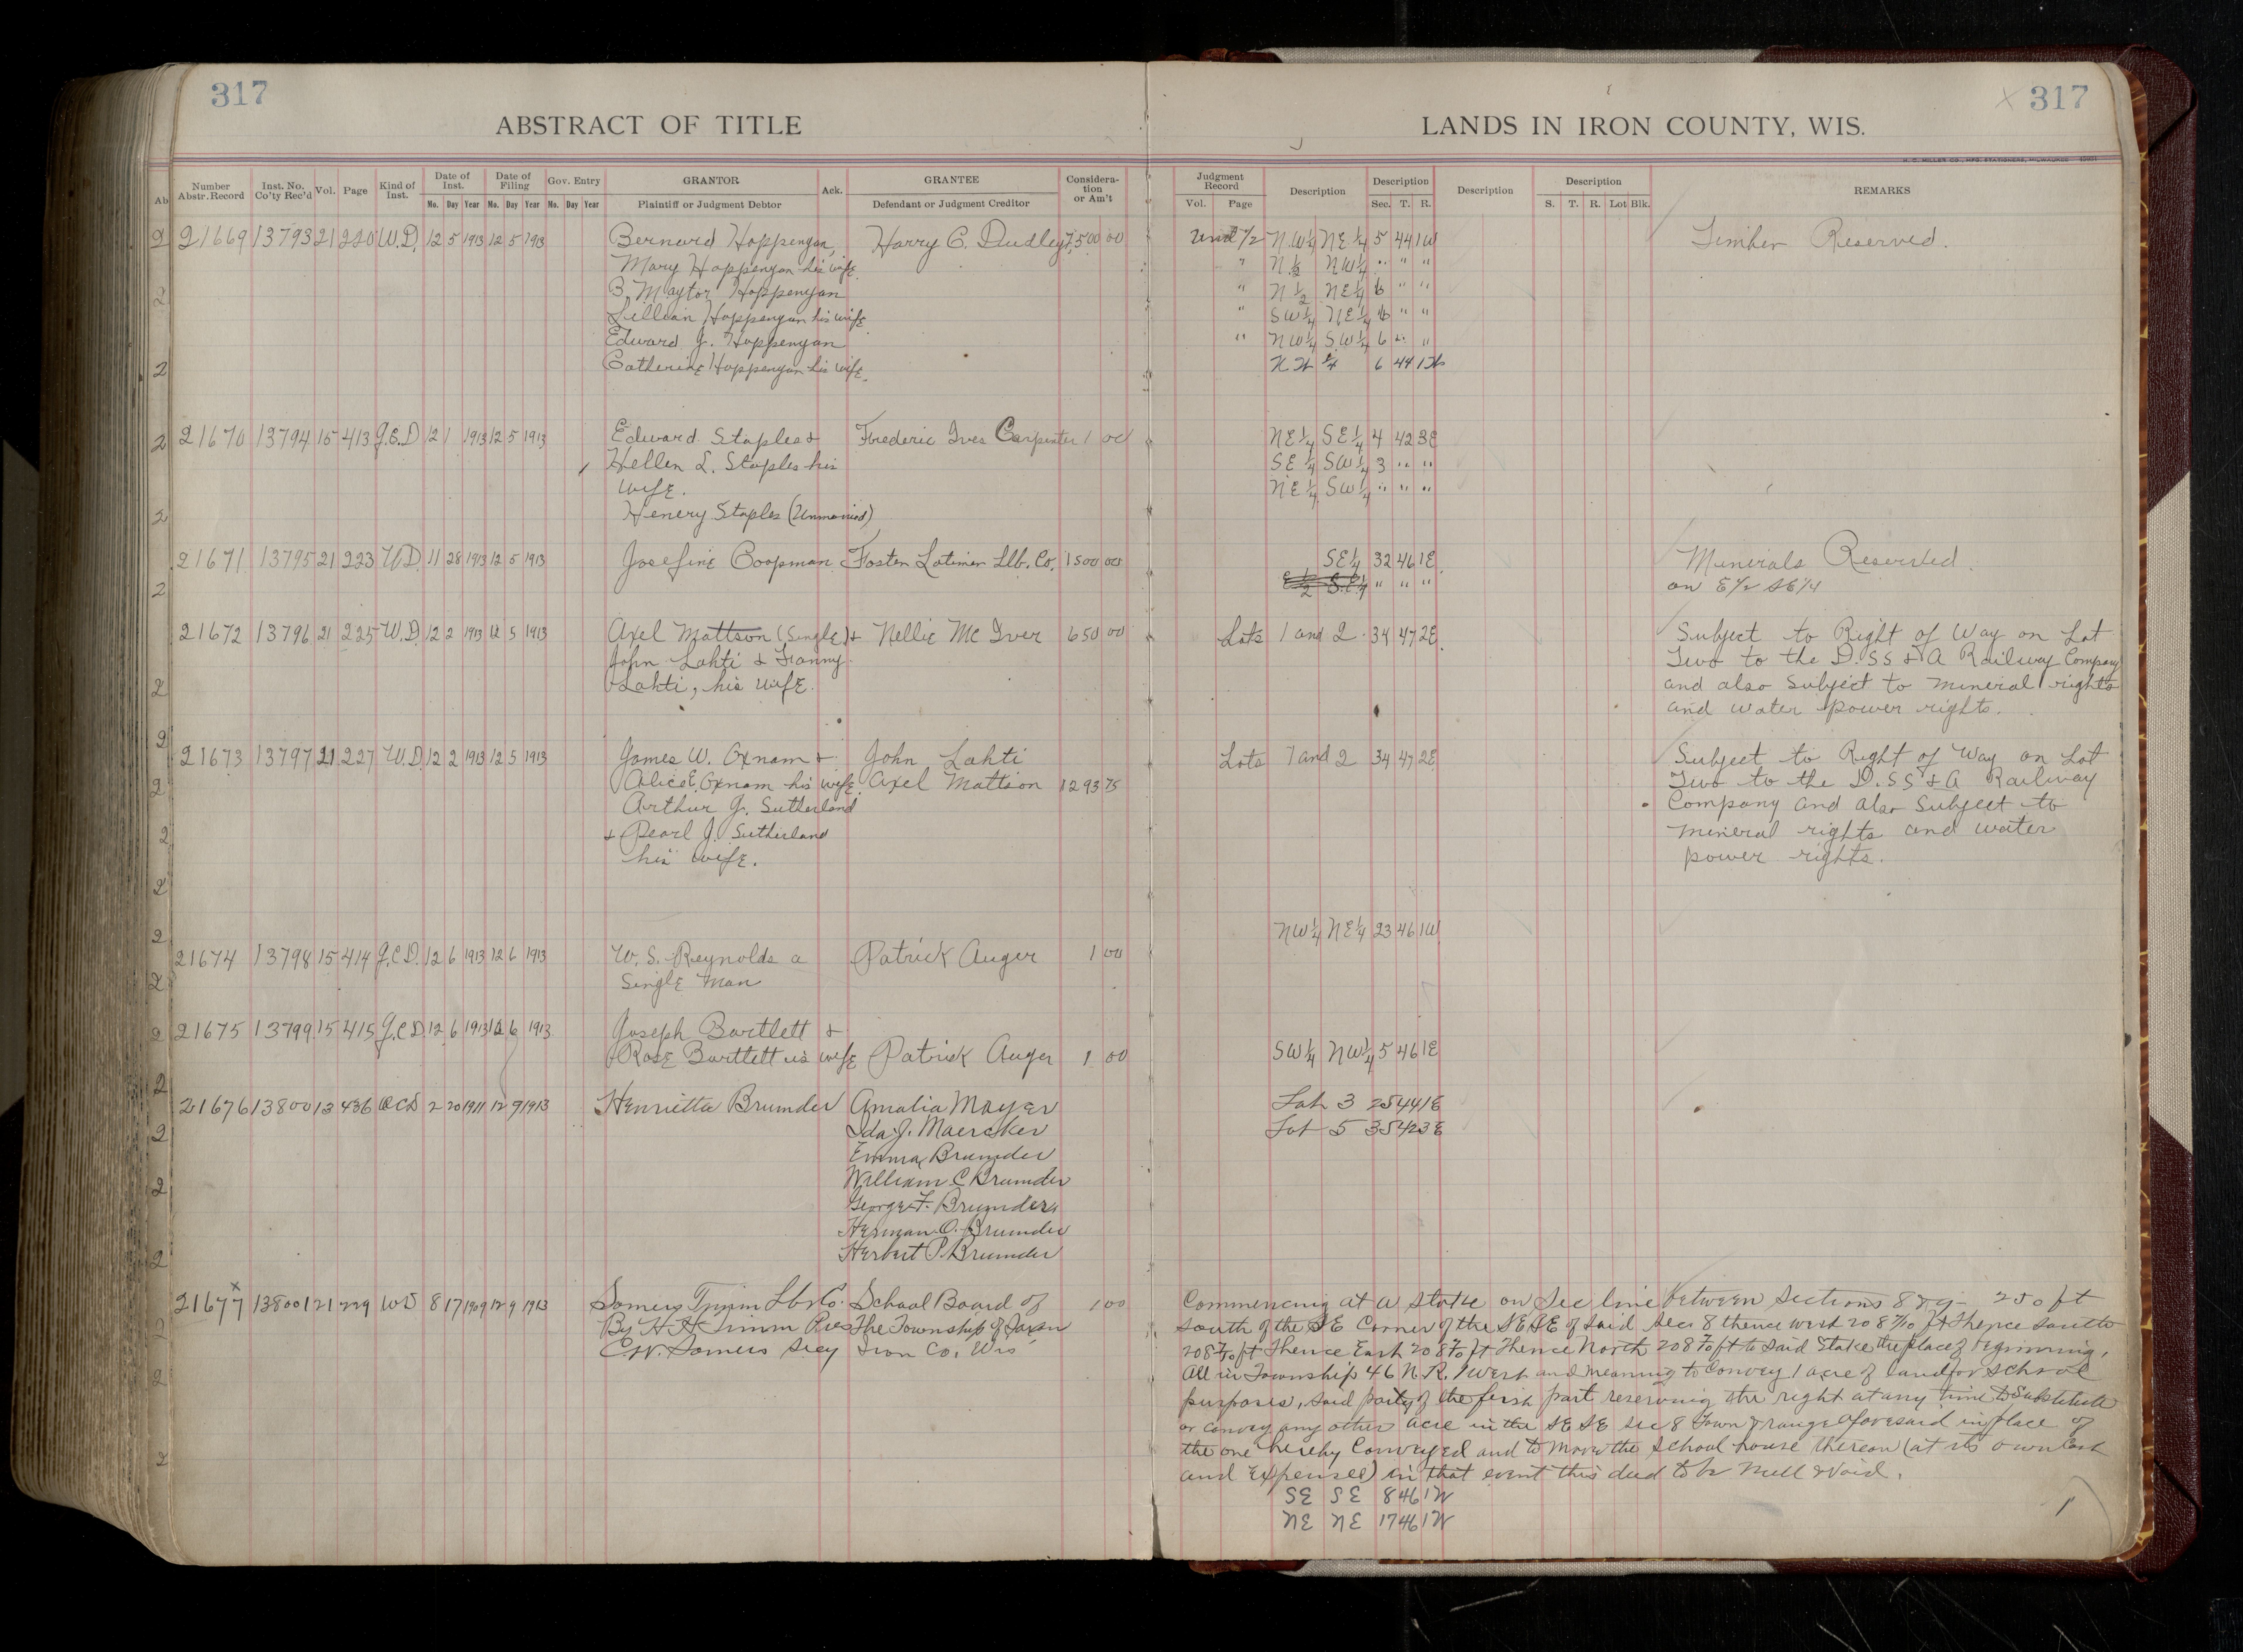 317
ABSTRACT OF TITLE
Number Abstr. Record Inst. No. Co'ty Rec'd Vol. Page Kind of Inst. Date of Inst. Date of Filing Gov. Entry GRANTOR Ack. GRANTEE Consideration or Am't
Mo. Day Year Mo. Day Year No. Day Year Plaintiff or Judgment Debtor Defendant or Judgment Creditor
21669 13793 21 220 W.D. 12 5 1913 12 5 1913 Bernard Hoppenyan, Harry C. Dudley 7,500 00
Mary Hoppenyan his wife
B. Maytor Hoppenyan
Lillian Hoppenyan his wife
Edward J. Hoppenyan
Catherine Hoppenyan his wife.
21670 13794 15 413 Q.C.D 12 1 1913 12 5 1913 Edward Staples & Frederic Ives Carpenter 1 00
Hellen L. Staples his
wife.
Henery Staples (Unmarried)
21671 13795 21 223 W.D. 11 28 1913 12 5 1913 Josefine Coopman Foster Latimer Lbr. Co. 1500 00
21672 13796 21 225 W.D. 12 2 1913 12 5 1913 Axel Mattson (Single) & Nellie Mc Iver 650 00
John Lahti & Fanny
Lahti, his wife.
21673 13797 21 227 W.D. 12 2 1913 12 5 1913 James W. Oxnam & John Lahti
Alice E. Oxnam his wife. Axel Mattson 1293 75
Arthur J. Sutherland
& Pearl J. Sutherland
his wife.
21674 13798 15 414 Q.C.D. 12 6 1913 12 6 1913 W. S. Reynolds a Patrick Auger 1 00
Single Man
21675 13799 15 415 Q.C.D. 12 6 1913 12 6 1913 Joseph Bartlett &
Rose Bartlett his wife Patrick Auger 1 00
21676 13800 13 436 QCD 2 20 1911 12 9 1913 Henrietta Brumder Amalia Mayer
Ida J. Maercker
Emma Brumder
William C Brumder
George F. Brumder
Herman O. Brumder
Herbert P. Brumder
21677 x 13800 1 21 229 WD 8 17 1909 12 9 1913 Somers Timm Lbr Co. School Board of 1 00
By H H Timm Pres The Township of Saxon
C.W. Somers Secy Iron Co, Wis
317
LANDS IN IRON COUNTY, WIS.
Judgment Record Description Description Description Description REMARKS
Vol. Page Sec. T. R. S. T. R. Lot Blk.
Und 1/2 NW¼ NE¼ 5 44 1W Timber Reserved.
" N½ NW¼ " " "
" N½ NE¼ 6 " "
" SW¼ NE¼ 6 " "
" NW¼ SW¼ 6 " "
NW ¼ 6 44 1W
NE¼ SE¼ 4 42 3E
SE¼ SW¼ 3 " "
NE¼ SW¼ " " "
SE¼ 32 46 1E Minerals Reserved.
E½ S.E.¼ " " " on E½ SE¼
Lots 1 and 2 34 47 2E Subject to Right of Way on Lot
Two to the D.SS & A Railway Company
and also Subject to mineral rights
and water power rights.
Lots 1 and 2 34 47 2E Subject to Right of Way on Lot
Two to the D.SS & A Railway
Company and also Subject to
mineral rights and water
power rights.
NW¼ NE¼ 23 46 1W
SW¼ NW¼ 5 46 1E
Lot 3 25 44 1E
Lot 5 35 42 3E
Commencing at a stake on Sec line between Sections 8 & 9 250 ft
south of the SE Corner of the SE SE of said Sec 8 thence west 208 7/10 ft thence south
208 7/10 ft thence East 208 7/10 ft thence North 208 7/10 ft to said Stake the place of beginning,
All in Township 46 N. R. 1 west and meaning to convey 1 acre of land for school
purposes, said party of the first part reserving the right at any time to substitute
or convey any other acre in the SE SE Sec 8 Town & range aforesaid in place of
the one hereby conveyed and to move the school house thereon (at its own cost
and expense) in that event this deed to be null & void.
SE SE 8 46 1W
NE NE 17 46 1W